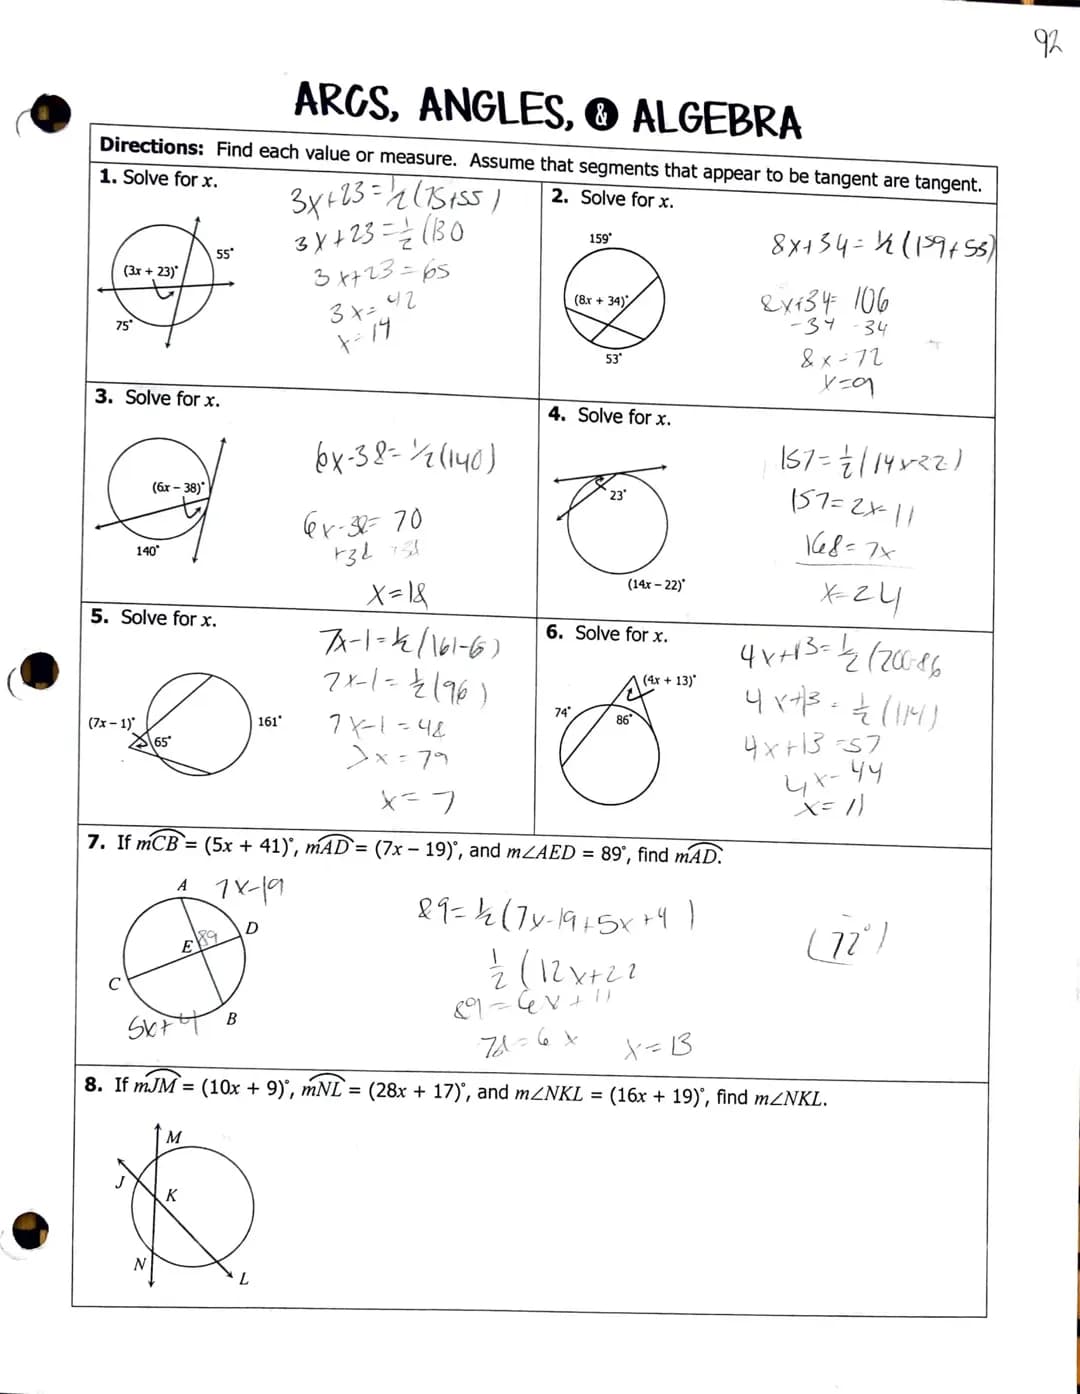 92
ARCS, ANGLES, & ALGEBRA
Directions: Find each value or measure. Assume that segments that appear to be tangent are tangent.
1. Solve for x.
(3x + 23)°
55°
75°
3x+23=½(75+55)
3x+23=½(130
3x+23=65
3x=42
x=14
2. Solve for x.
159°
(8x + 34)°
53°
8x+34=½(159+53)
8x+34=106
-34 -34
8x=72
x=9
3. Solve for x.
(6x – 38)°
140°
6x-38=½(140)
6x-38=70
x=18
4. Solve for x.
23°
(14x – 22)°
157=½(14x-22)
168=7x
x=24
5. Solve for x.
(7x – 1)°
65°
161°
7x-1=½(161-6)
7x-1=½(96)
7x-1=48
x=7
6. Solve for x.
(4x + 13)°
74°
86°
4x+13=½(200-86
4x+13=½(114)
4x+13=57
4x=44
x=11
7. If mCB = (5x + 41)°, mAD = (7x – 19)°, and m∠AED = 89°, find mAD.
A 7x-19
D
E 89
C
5x+4 B
89=½(7x-19+5x+4)
½(12x+22
89=6x+11
78=6x x=13
(77°)
8. If mJM = (10x + 9)°, mNL = (28x + 17)°, and m∠NKL = (16x + 19)°, find m∠NKL.
M
J
K
N
L